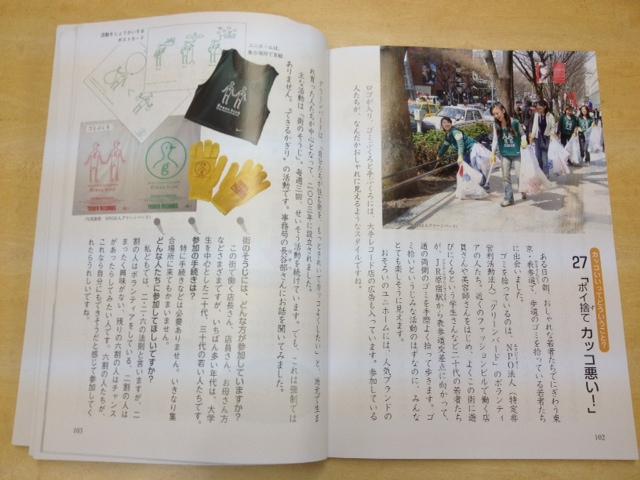 カッコいいってどういうこと?
27 「ポイ捨て、カッコ悪い!」
ある日の朝、おしゃれな若者たちでにぎわう東
京・表参道で、歩道のゴミを拾っている若者たち
に出会いました。
ゴミを拾っているのは、NPO法人(特定非
営利活動法人)「グリーンバード」のボランティ
アの人たち。近くのファッションビルで働く店
員さんや美容師さんをはじめ、よくこの街に遊
びにくるという学生さんなど二十代の若者たち
が、JR原宿駅から表参道交差点に向かって、
道の両側のゴミを手際よく拾って歩きます。ゴ
ミ拾いというじみな活動のはずなのに、みんな
とても楽しそうに見えます。
おそろいのユニホームには、人気ブランドの
ロゴが入り、ゴミぶくろと手ぶくろには、大手レコード店の広告も入っています。参加している
人たちが、なんだかおしゃれに見えるようなスタイルですね。
102
活動をしょうかいする
ポストカード
ユニホームは、
集合場所で支給
TOWER RECORDS
TOWER RECORDS
れ育った人たちが中心となって、二〇〇三年に設立されました。
主な活動は「街のそうじ」。毎週三回、せいそう活動を続けています。でも、これは強制では
ありません。"できるかぎり"の活動です。事務局の長谷部さんにお話を聞いてみました。
街のそうじには、どんな方が参加していますか?
この街で働く店長さん、店員さん、お母さん方
などさまざまですが、いちばん多い年代は、大学
生を中心とした二十代、三十代の若い人たちです。
参加の手続きは?
特に手続きなどは必要ありません。いきなり集
合場所に来てもかまいません。
どんな人たちに参加してほしいですか?
私どもでは、二・二・六の法則と言いますが、二
割の人はボランティアをしている、二割の人は
まったく興味がない、残りの六割の人はチャンス
があったらしてみたい人です。六割の人たちが、
これなら自分にもできそうだと感じて参加してく
れたらうれしいですね。
103